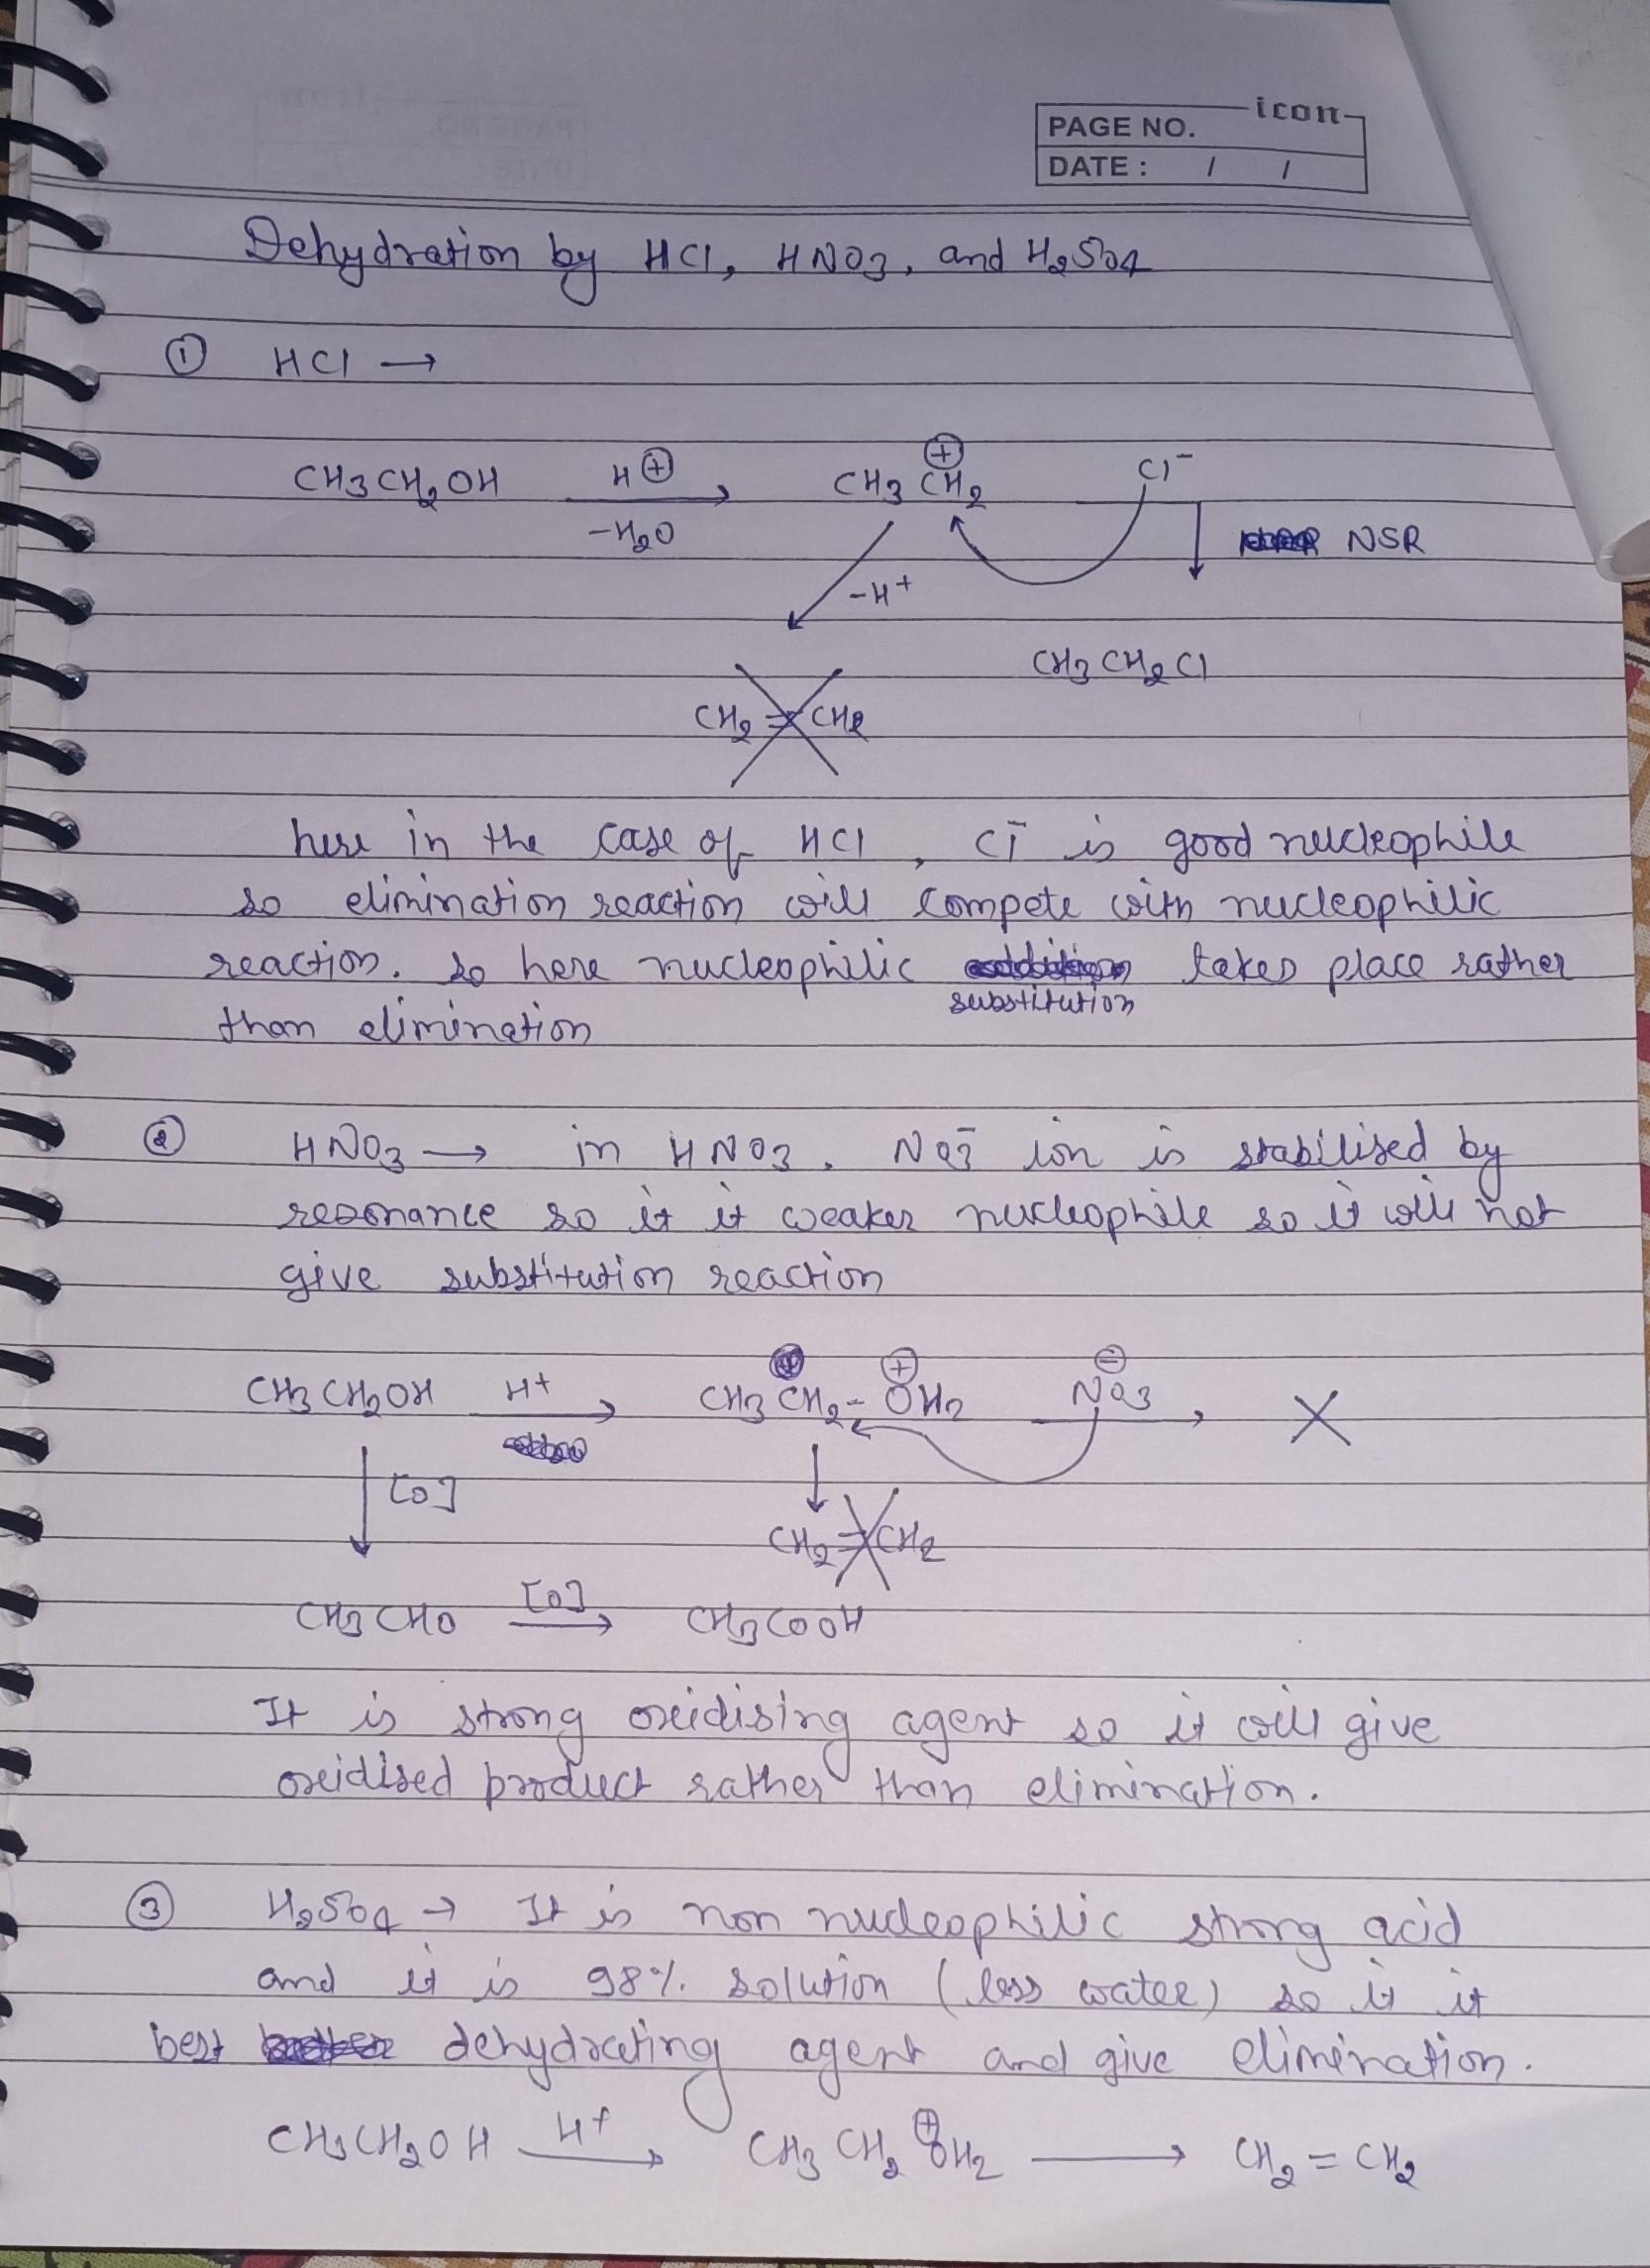 icon
PAGE NO.
DATE : / /
Dehydration by HCl, HNO3, and H2SO4
① HCl →
CH3CH2OH H⊕ → -H2O CH3 C⊕H2 Cl⁻
NSR
-H⁺
CH3 CH2 Cl
CH2 = CH2
here in the case of HCl, Cl⁻ is good nucleophile
so elimination reaction will compete with nucleophilic
reaction. so here nucleophilic substitution takes place rather
than elimination
② HNO3 → in HNO3. NO3⁻ ion is stabilised by
resonance so it it weaker nucleophile so it will not
give substitution reaction
CH3 CH2OH H+ → CH3 CH2 - O⊕H2 NO3⊖ → X
[O]
CH2 = CH2
CH3 CHO [O] → CH3COOH
It is strong oxidising agent so it will give
oxidised product rather than elimination.
③ H2SO4 → It is non nucleophilic strong acid
and it is 98% solution (less water) so it it
best dehydrating agent and give elimination.
CH3CH2OH H+ → CH3 CH2 O⊕H2 → CH2 = CH2